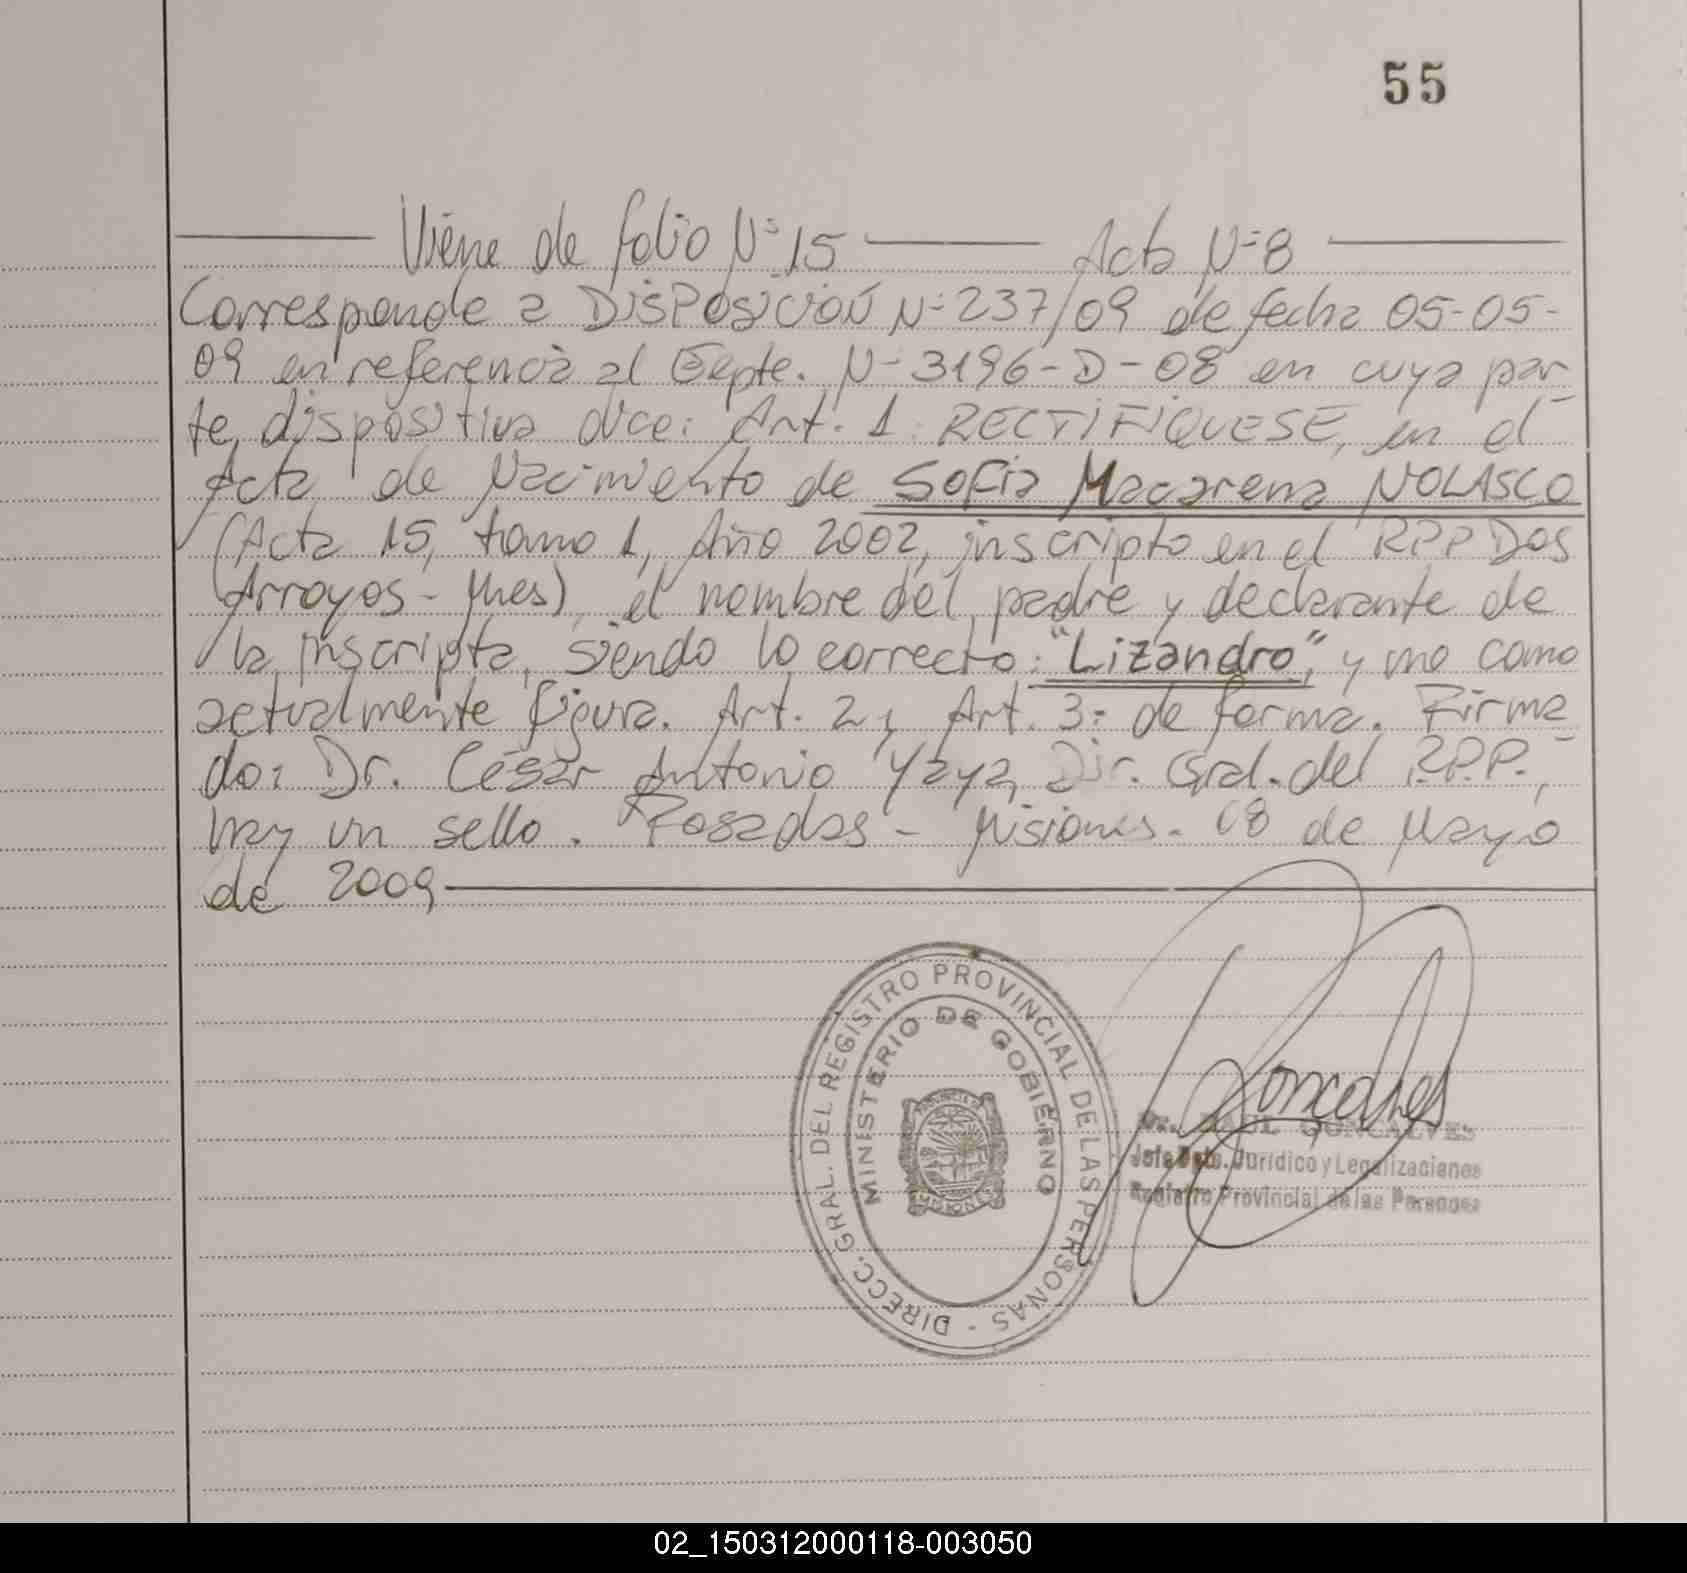 55
Viene de folio Nº 15 Acta Nº 8
Corresponde a DISPOSICIÓN Nº 237/09 de fecha 05-05-
09 en referencia al Expte. Nº 3196-D-08 en cuya par-
te dispositiva dice: Art. 1: RECTIFIQUESE, en el
Acta de Nacimiento de Sofia Macarena NOLASCO
(Acta 15, tomo 1, Año 2002, inscripto en el RPP Dos
Arroyos - Mnes), el nombre del padre y declarante de
la inscripta, siendo lo correcto: "Lizandro", y no como
actualmente figura. Art. 2 y Art. 3: de forma. Firma-
do: Dr. César Antonio Yaya, Dir. Gral. del R.P.P.,
hay un sello. Posadas - Misiones. 08 de Mayo
de 2009
DIRECC. GRAL. DEL REGISTRO PROVINCIAL DE LAS PERSONAS -
MINISTERIO DE GOBIERNO
PROVINCIA DE
MISIONES
Goncalves
Dr. RAUL GONCALVES
Jefe Dpto. Jurídico y Legalizaciones
Registro Provincial de las Personas
02_150312000118-003050